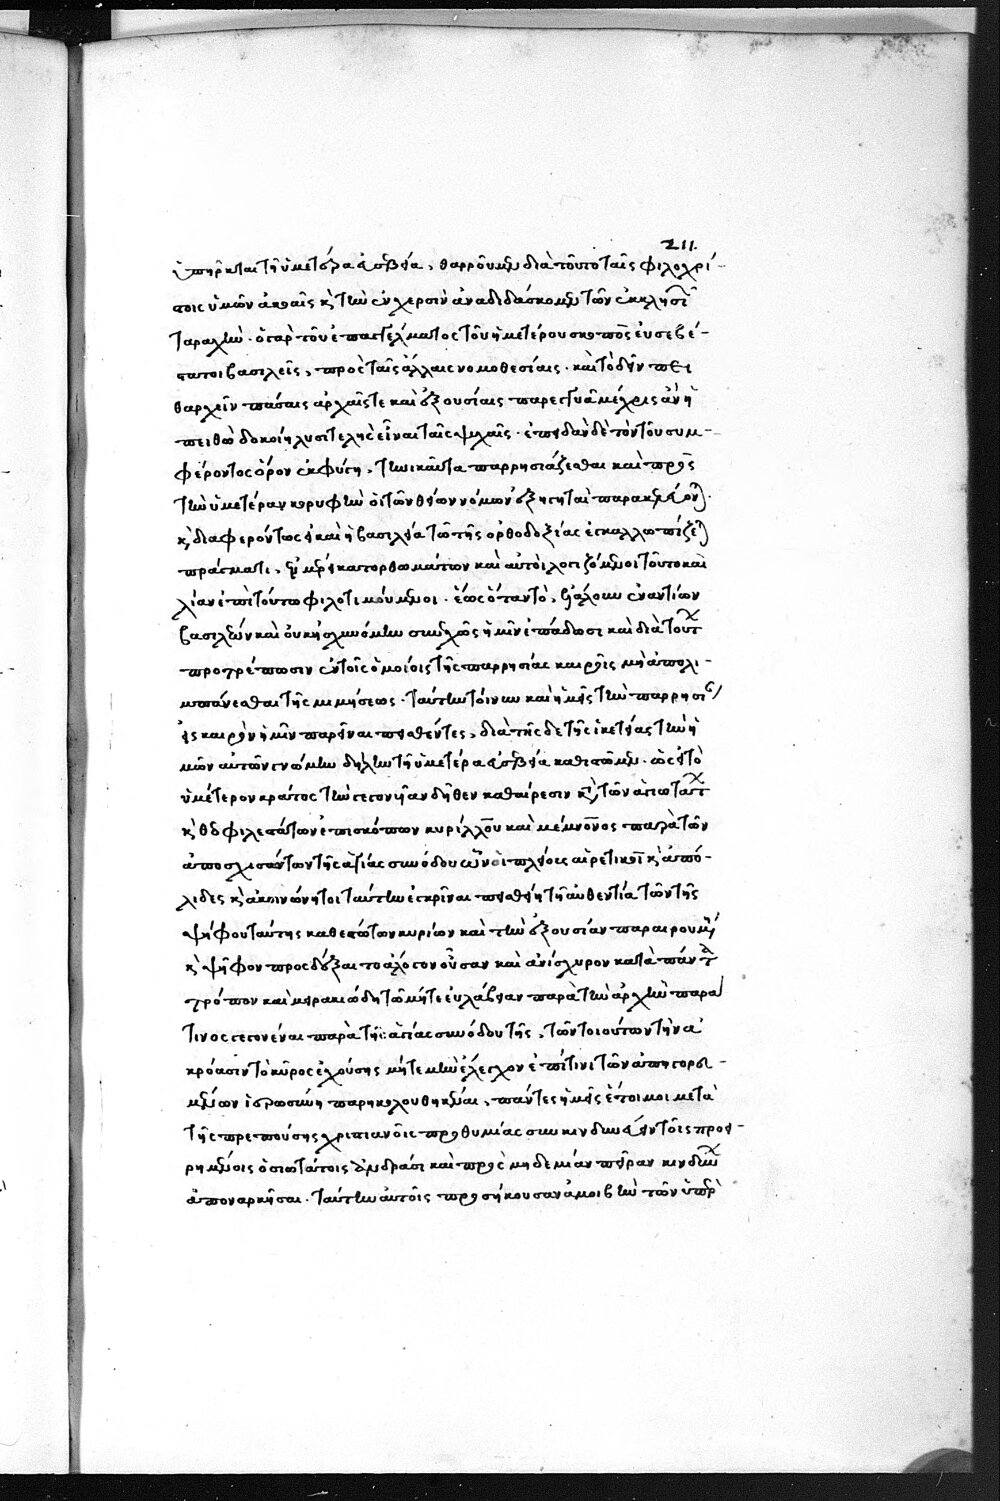 211.
ὑπηρκται τῇ ὑμετέρα εὐσεβεία, θαρροῦμεν διὰ τοῦτο ταῖς φιλοχρί-
στοις ὑμῶν ἀκοαῖς κỳ τὴν ἐν χερσὶν ἀναδιδάσκομεν τῶν ἐκκλησι
ταραχὴν. ὁ γὰρ τοῦ ἐπαγγέλματος τοῦ ἡμετέρου σκοπὸς εὐσεβέ-
στατοι βασιλεῖς, πρὸς ταῖς ἄλλαις νομοθεσίαις. καὶ τὸ δεῖν πει
θαρχεῖν πάσαις ἀρχαῖς τε καὶ ἐξουσίαις παρεγγυᾶ μέχρις ἂν ἡ
πειθὼ δοκοίη λυσιτελὴς εἶναι ταῖς ψυχαῖς. ἐπειδὰν δὲ τὸν τοῦ συμ-
φέροντος ὅρον ἐκφύγῃ, τηνικαῦτα παρρησιάζεσθαι καὶ πρὸς
τὴν ὑμετέραν κορυφὴν οἱ τῶν θείων νόμων ἐξηγηταὶ παρακελεύον).
κỳ διαφερόντως εἰ καὶ ἡ βασιλεία τῷ τῆς ὀρθοδοξίας ἐγκαλλωπίζε)
πράγματι, ἐν μέρει κατορθωμάτων καὶ αὐτοὶ λογιζόμενοι τοῦτο καὶ
λίαν ἐπὶ τούτῳ φιλοτιμούμενοι. ἕως ὅταν τὸ, ἐλάλουν ἐναντίων
βασιλέων καὶ οὐκ ᾐσχυνόμην συνεχῶς ἡμῖν ἐπάδωσι καὶ διὰ τοῦτ
προτρέπωσιν ἐν τοῖς ὁμοίοις τῆς παρρησίας καιροῖς μὴ ἀπολι-
μπάνεσθαι τῆς μιμήσεως. ταύτην τοίνυν καὶ ἡμεῖς τὴν παρρησι
εἰς καιρὸν ἡμῖν παρεῖναι πεισθέντες, διὰ τῆς δε τῆς ἱκετείας τὴν ἡ
μῶν αὐτῶν γνώμην δήλην τῇ ὑμετέρα εὐσεβεία καθιστῶμεν. ὡς εἰ τὸ
ὑμέτερον κράτος τὴν γεγονυῖαν δῆθεν καθαίρεσιν κατὰ τῶν ἁγιωτάτ
κỳ θεοφιλεστάτων ἐπισκόπων κυρίλλου καὶ μέμνονος παρὰ τῶν
ἀποσχισάντων τῆς ἁγίας συνόδου ὧν οἱ πλείους αἱρετικοὶ κỳ ἀπό-
λιδες κỳ ἀκοινώνητοι ταύτην ἐγκρῖναι πεισθείη τῇ αὐθεντία τῶν τῆς
ψήφου ταύτης καθεστώτων κυρίων καὶ τὴν ἐξουσίαν παραιρουμέν
κỳ ψῆφον προσδέξαι το ἄλογον οὖσαν καὶ ἀνίσχυρον κατὰ πάντα
τρόπον καὶ μειρακιώδη τῷ μήτε εὐλάβειαν παρὰ τὴν ἀρχὴν παρά
τινος γεγονέναι παρὰ τῇ ἁγίας συνόδου τῆς, τῶν τοιούτων τὴν ἀ
κρόασιν τὸ κῦρος ἐχούσης μήτε μὴν ἔλεγχον ἐπί τινι τῶν ἀπηγορευ-
μένων ἱερωσύνη παρηκολουθηκέναι, πάντες ἡμεῖς ἕτοιμοι μετὰ
τῆς πρεπούσης χριστιανοῖς προθυμίας συγκινδυνεύειν τοῖς προει-
ρημένοις ὁσιωτάτοις ἀνδράσι καὶ πρὸς μηδεμίαν πεῖραν κινδύν
ἀποναρκῆσαι. ταύτην αὐτοῖς προσήκουσαν ἀμοιβὴν τῶν ὑπὲρ